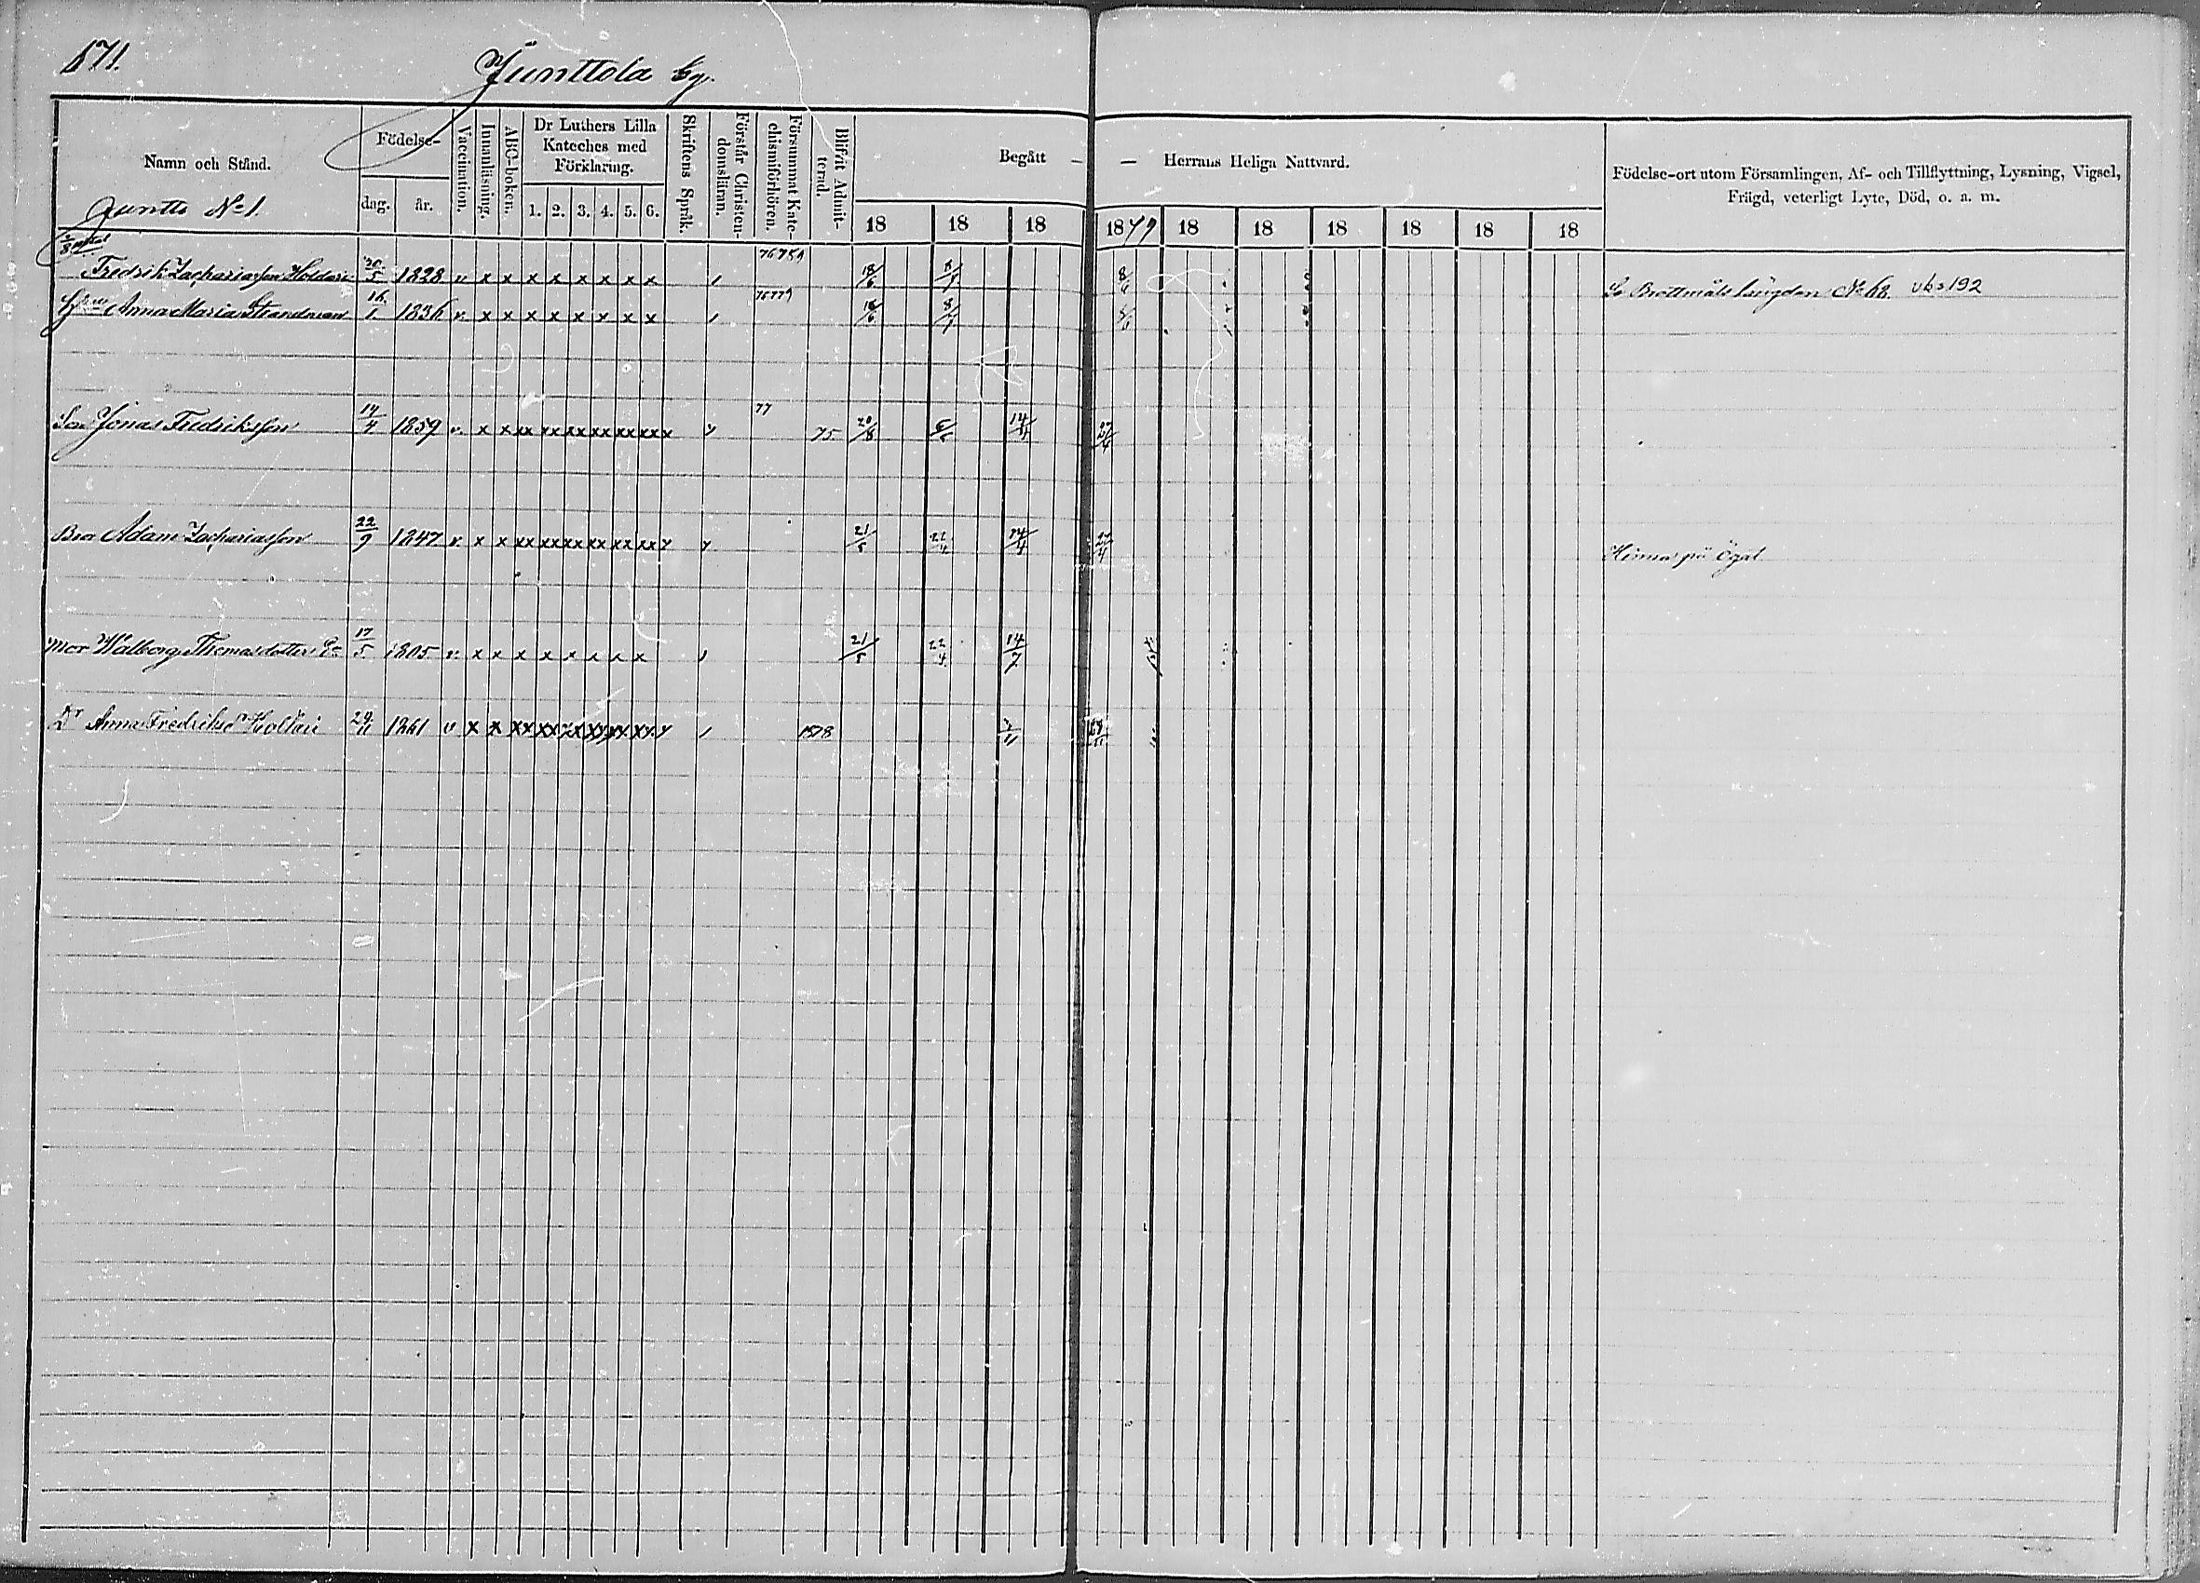 171.
Junttola by.
Namn och Stånd.
Födelse-
dag.
år.
Vaccination.
Innanläsning.
ABC-boken.
Dr Luthers Lilla
Kateches med
Förklaring.
1. 2. 3. 4. 5. 6.
Skriftens Språk.
Förstår Christen-
domsläran.
Försummat Kate-
chismiförhören.
Blifvit Admit-
terad.
Begått — — Herrans Heliga Nattvard.
18 18 18 1879 18 18 18 18 18 18
Födelse-ort utom Församlingen, Af- och Tillflyttning, Lysning, Vigsel,
Frägd, veterligt Lyte, Död, o. a. m.
Juntto No 1.
Fredrik Zachariasson Holdari 30/5 1828 v x x x x x x x x 18/6 8/7 8/6 Se Brottmåls längden No 68. vbs 192
Hru Anna Maria Strandman 16/1 1836 v. x x x x x x x x 18/6 8/7 8/6
Son Jonas Fredriksson 14/4 1859 v. x x xx xx xx xx xx xx x 77 75 20/8 14/4 27/4
Bror Adam Zachariasson 22/9 1847 v. x x xx xx xx xx xx xx y 21/5 22/4 14/4 27/4
Mor Walborg Thomasdotter 17/5 1805 v. x x x x x x x x 21/5 22/4 14/7
Dr Anna Fredriksd Holtari 29/11 1861 v x x xx xx xx xx xx xx y 1878